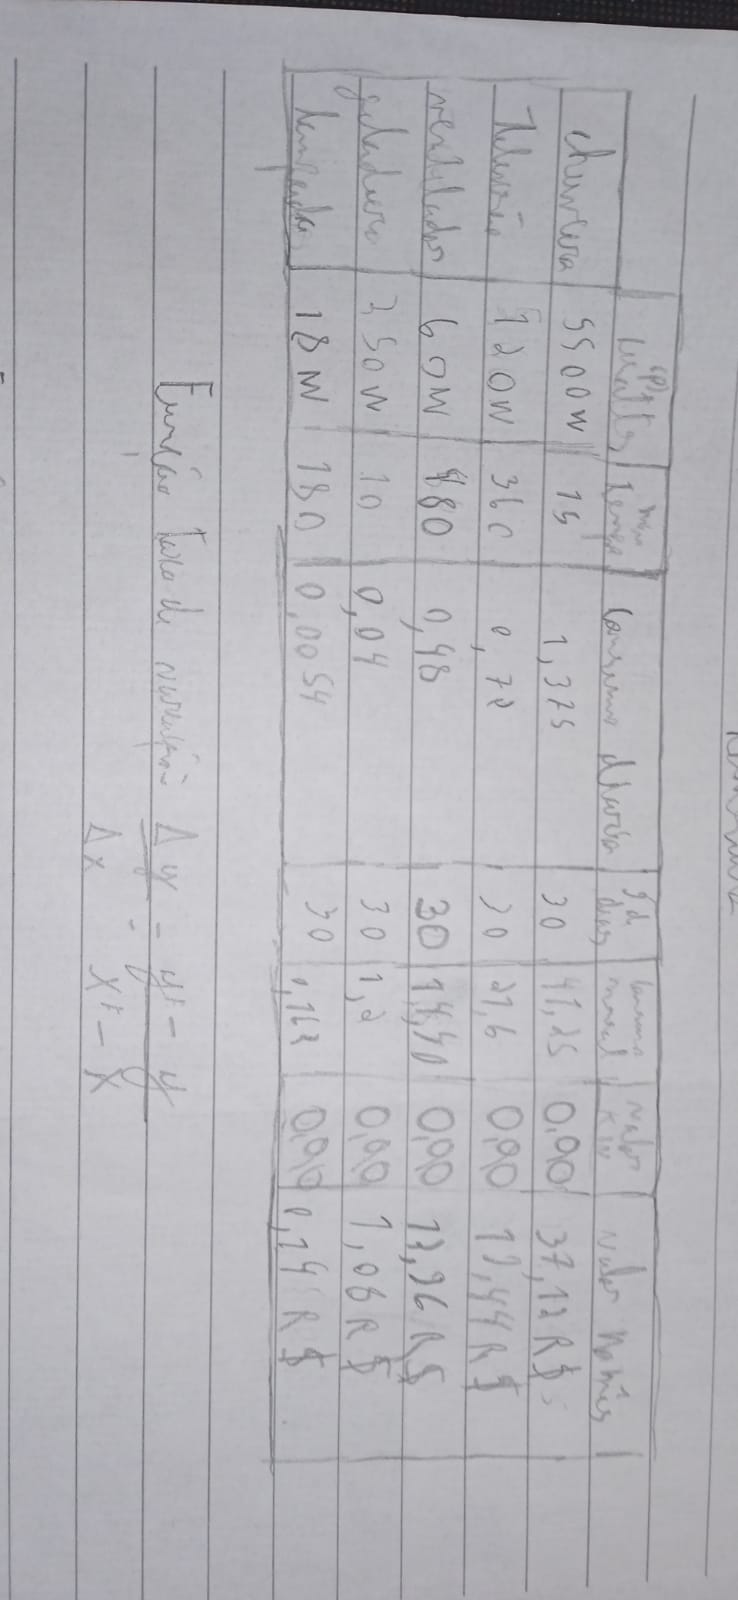 (P) Watts min tempo Consumo diário Qd dias Consumo mensal valor KW valor no mês
chuveiro 5500W 15 1,375 30 41,25 0,90 37,12 R$
Televisão 120W 360 0,72 30 21,6 0,90 19,44 R$
ventilador 60W 480 0,48 30 14,40 0,90 12,96 R$
geladeira 250W 10 0,04 30 1,2 0,90 1,08 R$
lampada 18W 180 0,0054 30 0,162 0,90 0,14 R$
Função taxa de variação Δy = y¹ - y
Δx x¹ - x